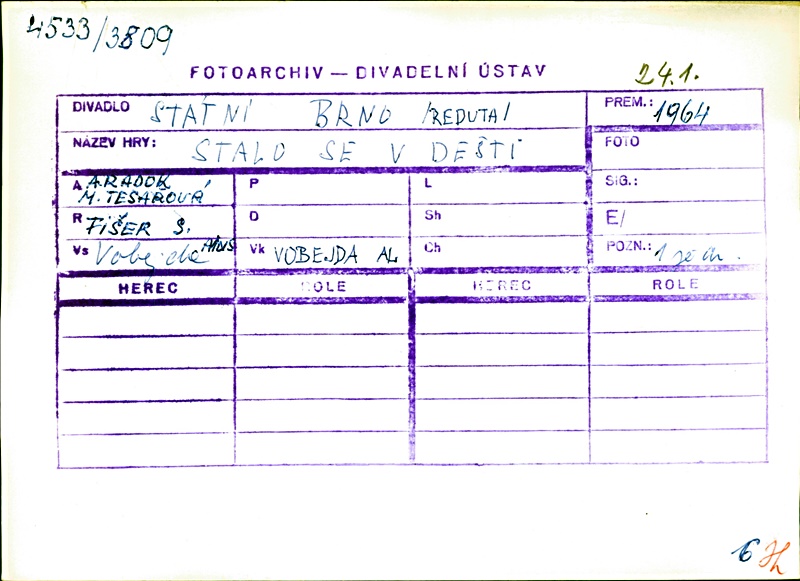 4533/3809
FOTOARCHIV — DIVADELNÍ ÚSTAV
24.1.
DIVADLO STÁTNÍ BRNO /REDUTA/
PREM.: 1964
NÁZEV HRY: STALO SE V DEŠTI
FOTO
A A.RADOK
M.TESAROVÁ
P
L
SIG.:
R FIŠER S.
O
Sh
E/
Vs Vobejda Alois
Vk VOBEJDA AL
Ch
POZN.: 1 
HEREC ROLE HEREC ROLE
6